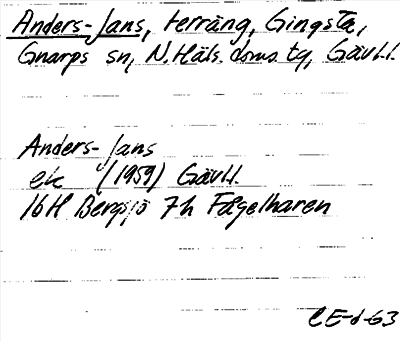 Anders-Jans, terräng, Gingsta,
Gnarps sn, N. Häls. doms. tg, Gävl.l.
Anders-Jans
ek "(1959) Gävl.l.
16H Bergsjö 7h Fågelharen
CE-d-63